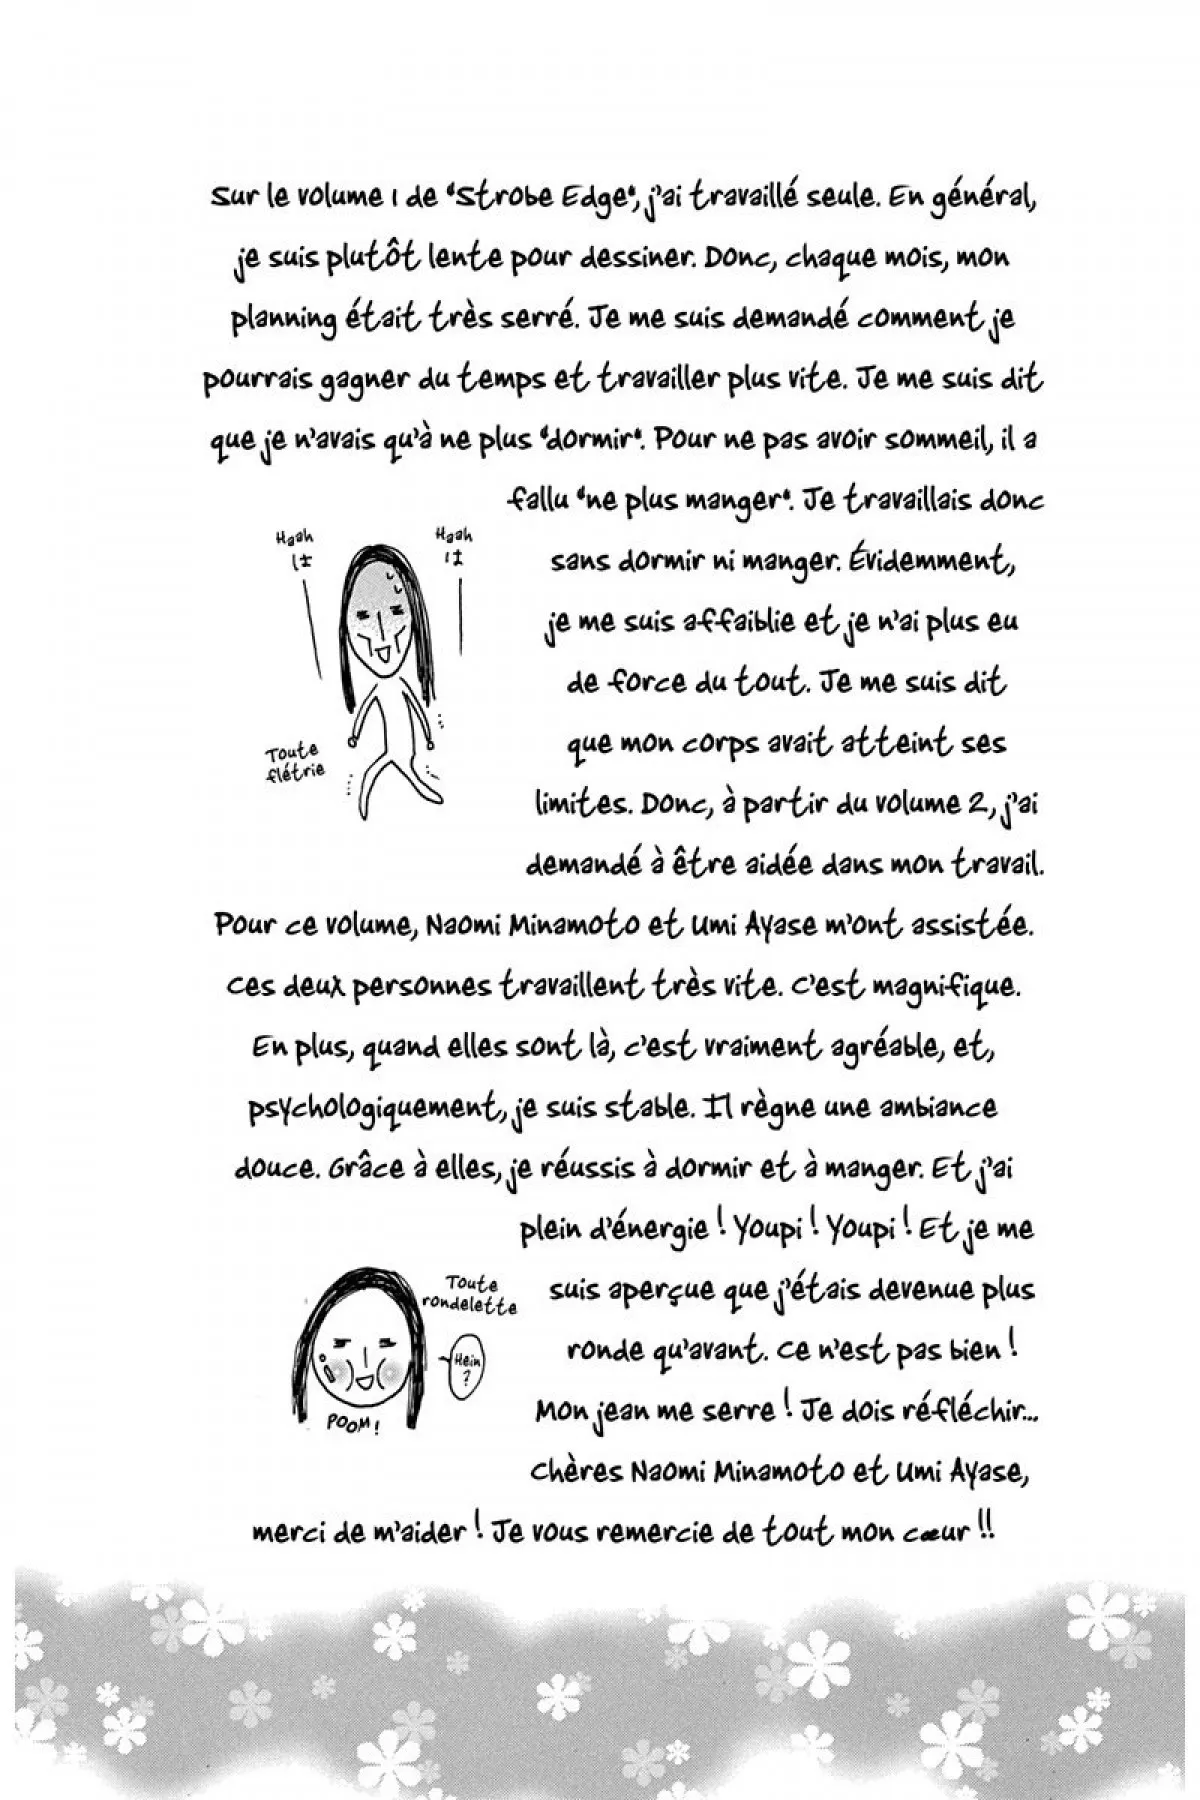 Sur le volume 1 de "Strobe Edge", j'ai travaillé seule. En général,
je suis plutôt lente pour dessiner. Donc, chaque mois, mon
planning était très serré. Je me suis demandé comment je
pourrais gagner du temps et travailler plus vite. Je me suis dit
que je n'avais qu'à ne plus "dormir". Pour ne pas avoir sommeil, il a
fallu "ne plus manger". Je travaillais donc
sans dormir ni manger. Évidemment,
je me suis affaiblie et je n'ai plus eu
de force du tout. Je me suis dit
que mon corps avait atteint ses
limites. Donc, à partir du volume 2, j'ai
demandé à être aidée dans mon travail.
Haah
はぁ
Haah
はぁ
Toute
flétrie
Pour ce volume, Naomi Minamoto et Umi Ayase m'ont assistée.
Ces deux personnes travaillent très vite. C'est magnifique.
En plus, quand elles sont là, c'est vraiment agréable, et,
psychologiquement, je suis stable. Il règne une ambiance
douce. Grâce à elles, je réussis à dormir et à manger. Et j'ai
plein d'énergie ! Youpi ! Youpi ! Et je me
suis aperçue que j'étais devenue plus
ronde qu'avant. Ce n'est pas bien !
Mon jean me serre ! Je dois réfléchir...
Chères Naomi Minamoto et Umi Ayase,
merci de m'aider ! Je vous remercie de tout mon cœur !!
Toute
rondelette
Hein
?
POOM !